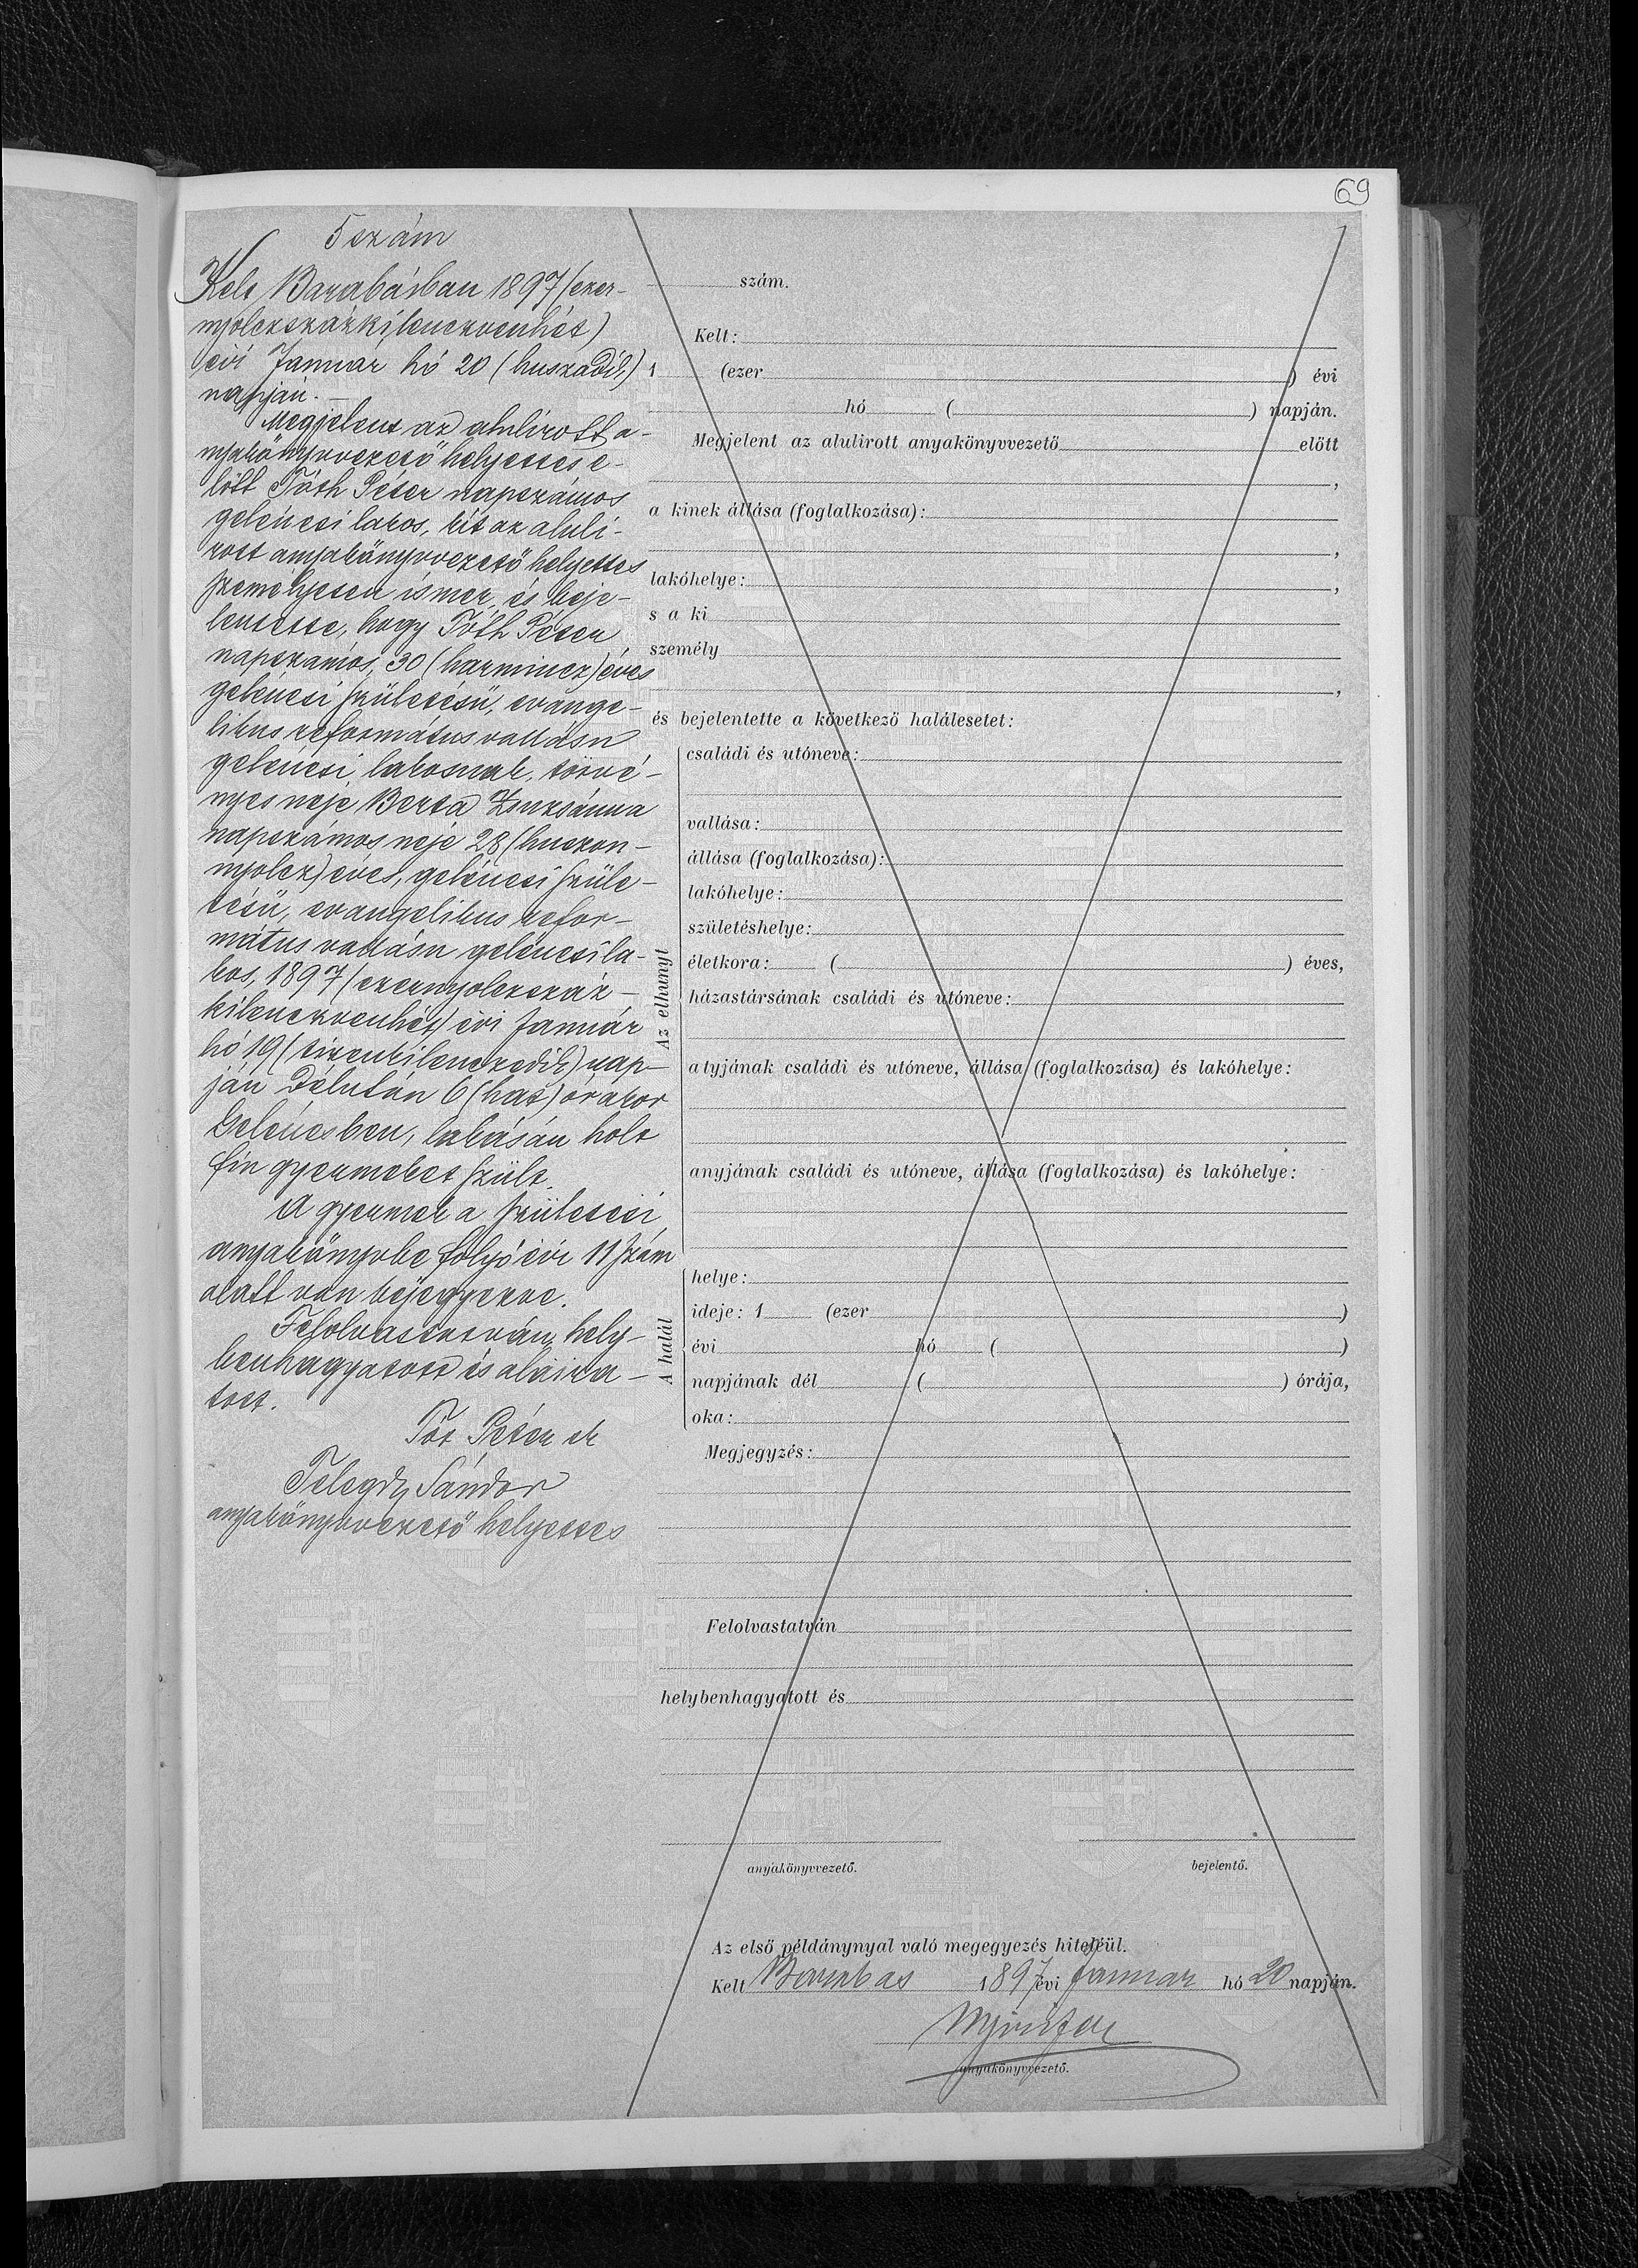 69
5 szám
Kelt Barabásban 1897 (ezer-
nyolczszázkilenczvenhét)
évi Januar hó 20 (huszadik)
napján. —
Megjelent az alulirott a-
nyakönyvvezető helyettes e-
lőtt Tóth Péter napszámos
gelénesi lakos, kit az aluli-
rott anyakönyvvezető helyettes
személyesen ismer, és beje-
lentette, hogy Tóth Péter
napszámos, 30 (harmincz) éves
gelénesi születésü, evange-
likus református vallásu
gelénesi lakosnak, törvé-
nyes neje Berta Zsuzsánna
napszámos neje 28 (huszon-
nyolcz) éves, gelénesi szüle-
tésü, evangelikus refor-
mátus vallásu gelénesi la-
kos, 1897 (ezernyolczszáz-
kilenczvenhét) évi Január
hó 19 (tizenkilenczedik) nap-
ján Délután 6 (hat) órakor
Gelénesben, lakásán holt
fiu gyermeket szült.
A gyermek a születési
anyakönyvbe folyó évi 11 szám
alatt van bejegyezve.
Felolvastatván, hely-
benhagyatott és aláira-
tott.
Tót Péter sk
Telegdy Sándor
anyakönyvvezető helyettes
szám.
Kelt:
1 (ezer ) évi
hó ( ) napján.
Megjelent az alulirott anyakönyvvezető előtt
,
a kinek állása (foglalkozása):
,
lakóhelye: ,
s a ki
személy
,
és bejelentette a következő halálesetet:
Az elhunyt
családi és utóneve:
vallása:
állása (foglalkozása):
lakóhelye:
születéshelye:
életkora: ( ) éves,
házastársának családi és utóneve:
atyjának családi és utóneve, állása (foglalkozása) és lakóhelye:
anyjának családi és utóneve, állása (foglalkozása) és lakóhelye:
A halál
helye:
ideje: 1 (ezer )
évi hó ( )
napjának dél ( ) órája,
oka:
Megjegyzés:
Felolvastatván
helybenhagyatott és
anyakönyvvezető. bejelentő.
Az első példánynyal való megegyezés hiteléül.
Kelt Barabas 1897 évi Januar hó 20 napján.
anyakönyvvezető.